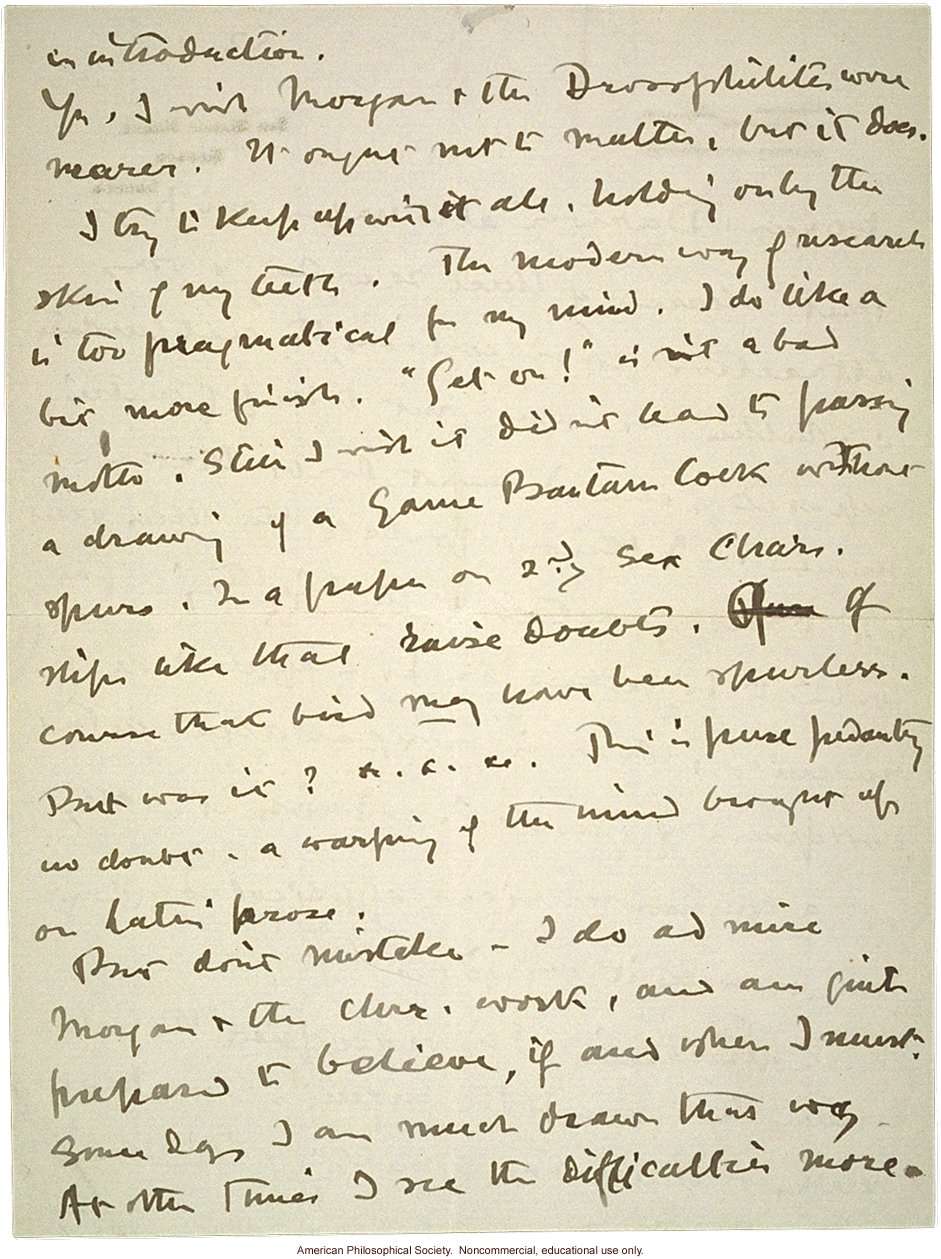 in introduction.
Yes, I wish Morgan & the Drosophilites were
nearer. It ought not to matter, but it does.
I try to keep up with it all, holding only by the
skin of my teeth. The modern way of research
is too pragmatical for my mind. I do like a
bit more finish. "Get on!" is not a bad
motto. Still I wish it didn't lead to passing
a drawing of a Game Bantam Cock without
spurs. In a paper on 2ry Sex Chars.
slips like that raise doubts. Of
course that bird may have been spurless.
But was it? x. x. x. This is pure pedantry
no doubt. a warping of the mind brought up
on Latin prose.
But don't mistake - I do admire
Morgan & the Chr. work, and am quite
prepared to believe, if and when I must.
Some days I am much drawn that way
At other times I see the difficulties more.
American Philosophical Society. Noncommercial, educational use only.